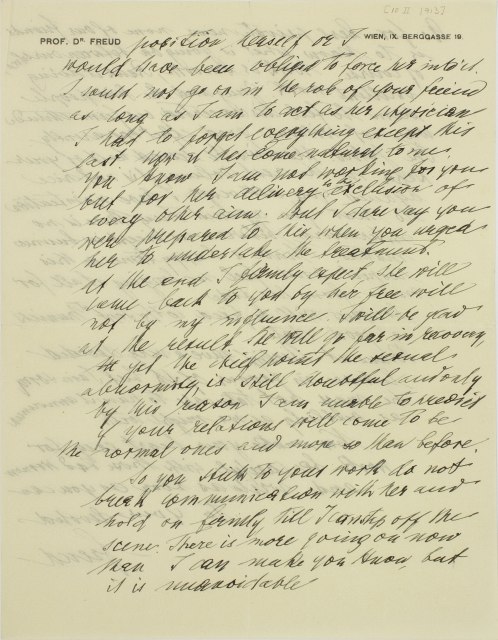 [10 II 1913]
PROF. DR. FREUD
WIEN, IX. BERGGASSE 19.
position herself or I
would have been obliged to force her into it.
I could not go on in the rôle of your friend
as long as I am to act as her physician
I had to forget everything except this
last. Now it has come natural to me.
You know I am not working for you
but for her delivery to the exclusion of
every other aim. But I dare say you
were prepared to this when you urged
her to undertake the treatment.
At the end I firmly expect she will
come back to you by her free will
not by my influence. I will be glad
at the result. She will go far in recovery
yet the chief point the sexual
abnormity is still doubtful and only
by this reason I am unable to predict
if your relations will come to be
the normal ones and more so than before.
So you stick to your work do not
break communication with her and
hold on firmly till I can step off the
scene. There is more going on now
than I can make you know, but
it is unavoidable